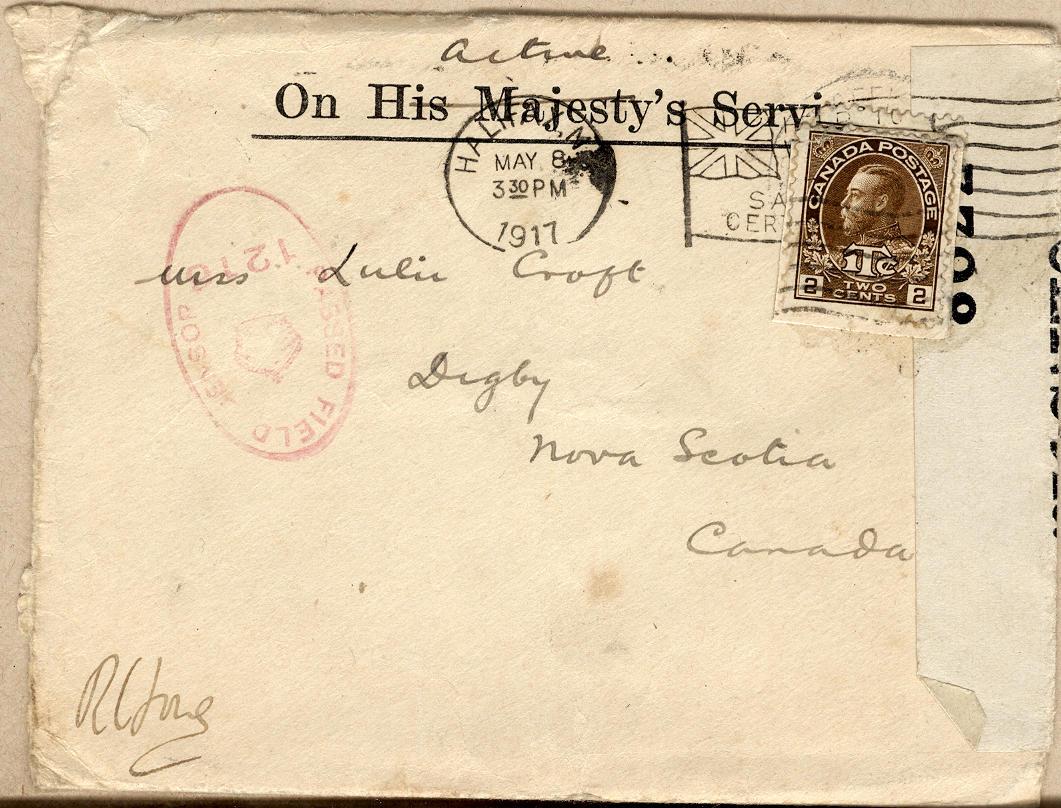 active
On His Majesty's Servi
HALIFAX, N
MAY 8
3 30 PM
1917
SA
CERT
CANADA POSTAGE
1Tc
2 TWO CENTS 2
PASSED FIELD CENSOR
121
Miss Lulie Croft
Digby
Nova Scotia
Canada